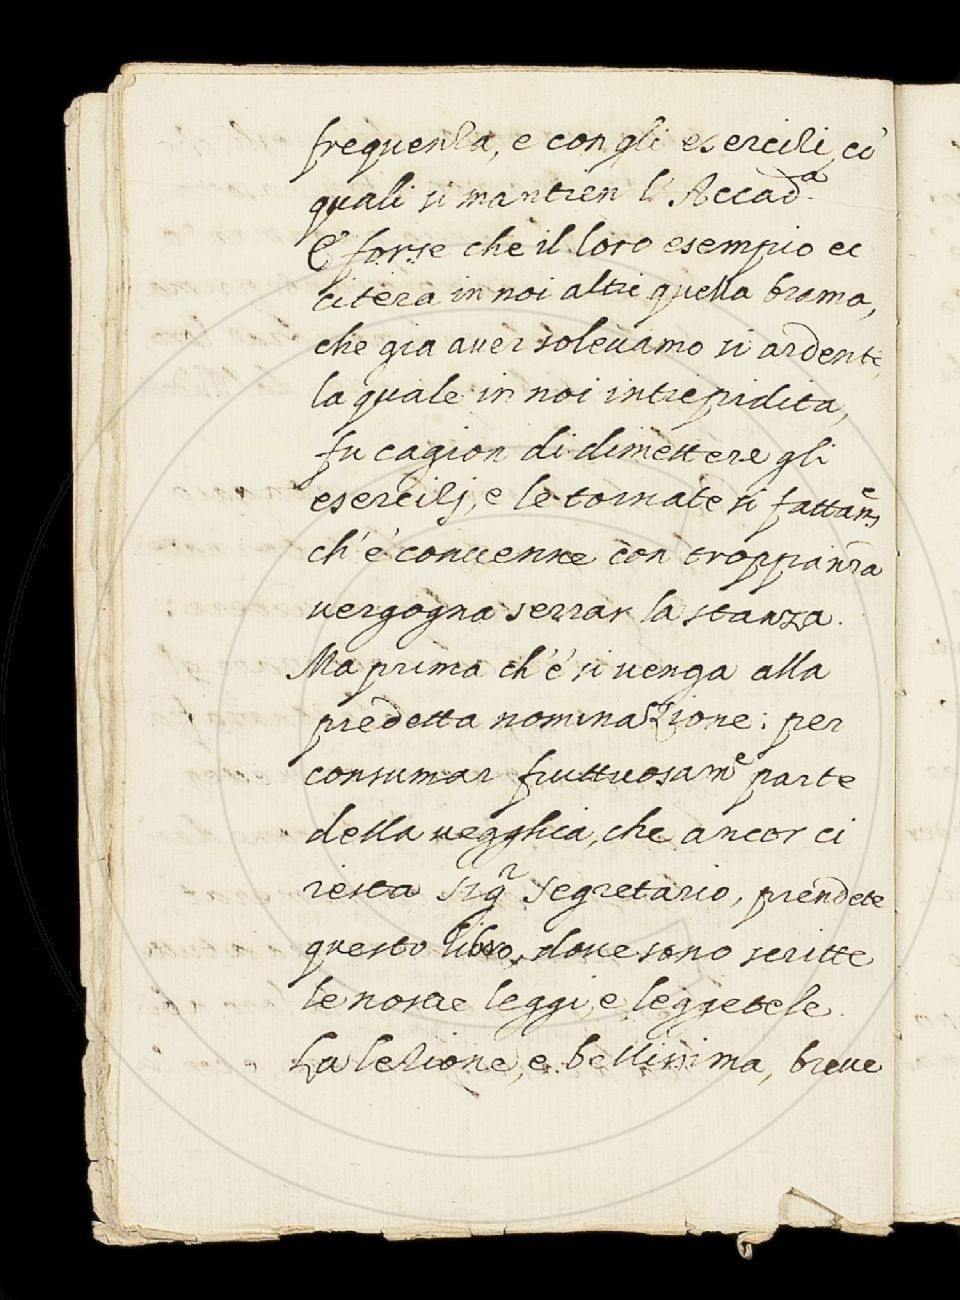 frequenza, e con gli esercizi, co'
quali si mantien l'Accad.a
E forse che il loro esempio ec
citera in noi altri quella brama,
che gia auer soleuamo si ardente,
la quale in noi intrepidita,
fu cagion di dimettere gli
esercizj, e le tornate si fattam.e
ch'e' conuenne con troppia nr̃a
uergogna serrar la stanza.
Ma prima ch'e' si uenga alla
predetta nominazione; per
consumar fruttuosam.e parte
della uegghia, che ancor ci
resta sig.r Segretario, prendete
questo libro, doue sono scritte
le nostre leggi, e leggetele.
La lezione, e bellissima, breue